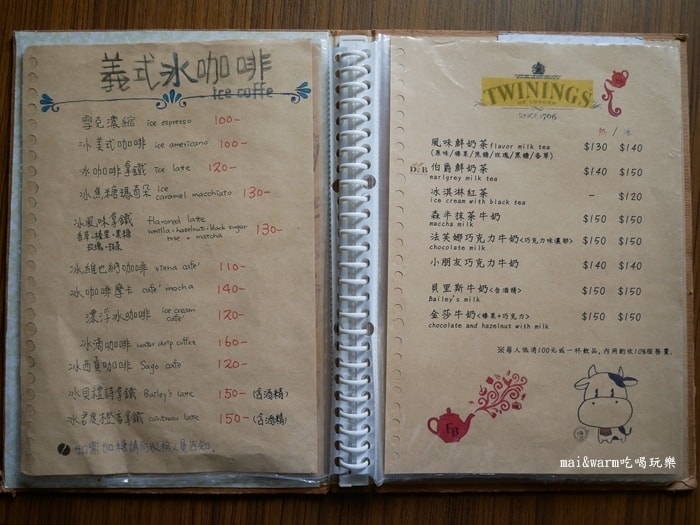 義式冰咖啡
ice coffe
雪克濃縮 ice espresso 100-
冰美式咖啡 ice americano 100-
冰咖啡拿鐵 ice late 120-
冰焦糖瑪奇朵 ice caramel macchiato 130-
冰風味拿鐵 flavored late 130-
香草·榛果·黑糖 vanilla·hazelnut·black sugar
玫瑰·抹茶 rose·matcha
冰維也納咖啡 viena cafe' 110-
冰咖啡摩卡 cafe' mocha 140-
漂浮冰咖啡 ice cream cafe' 120-
冰滴咖啡 water drip coffee 160-
冰西賈咖啡 Sago cafe 120-
冰貝禮詩拿鐵 Bailey's late 150-(含酒精)
冰君度橙香拿鐵 cointreau late 150-(含酒精)
如需加糖請向服務人員告知
TWININGS
SINCE 1706
熱 / 冰
風味鮮奶茶 flavor milk tea $130 $140
(原味/榛果/焦糖/玫瑰/黑糖/香草)
伯爵鮮奶茶 $140 $150
earlgrey milk tea
冰淇淋紅茶 - $120
ice cream with black tea
森半抹茶牛奶 $150 $150
maccha milk
法芙娜巧克力牛奶<巧克力味濃郁> $150 $150
chocolate milk
小朋友巧克力牛奶 $140 $140
貝里斯牛奶<含酒精> $150 $150
Bailey's milk
金莎牛奶<榛果+巧克力> $150 $150
chocolate and hazelnut with milk
※每人低消100元或一杯飲品,內用酌收10%服務費.
EB
mai&warm吃喝玩樂